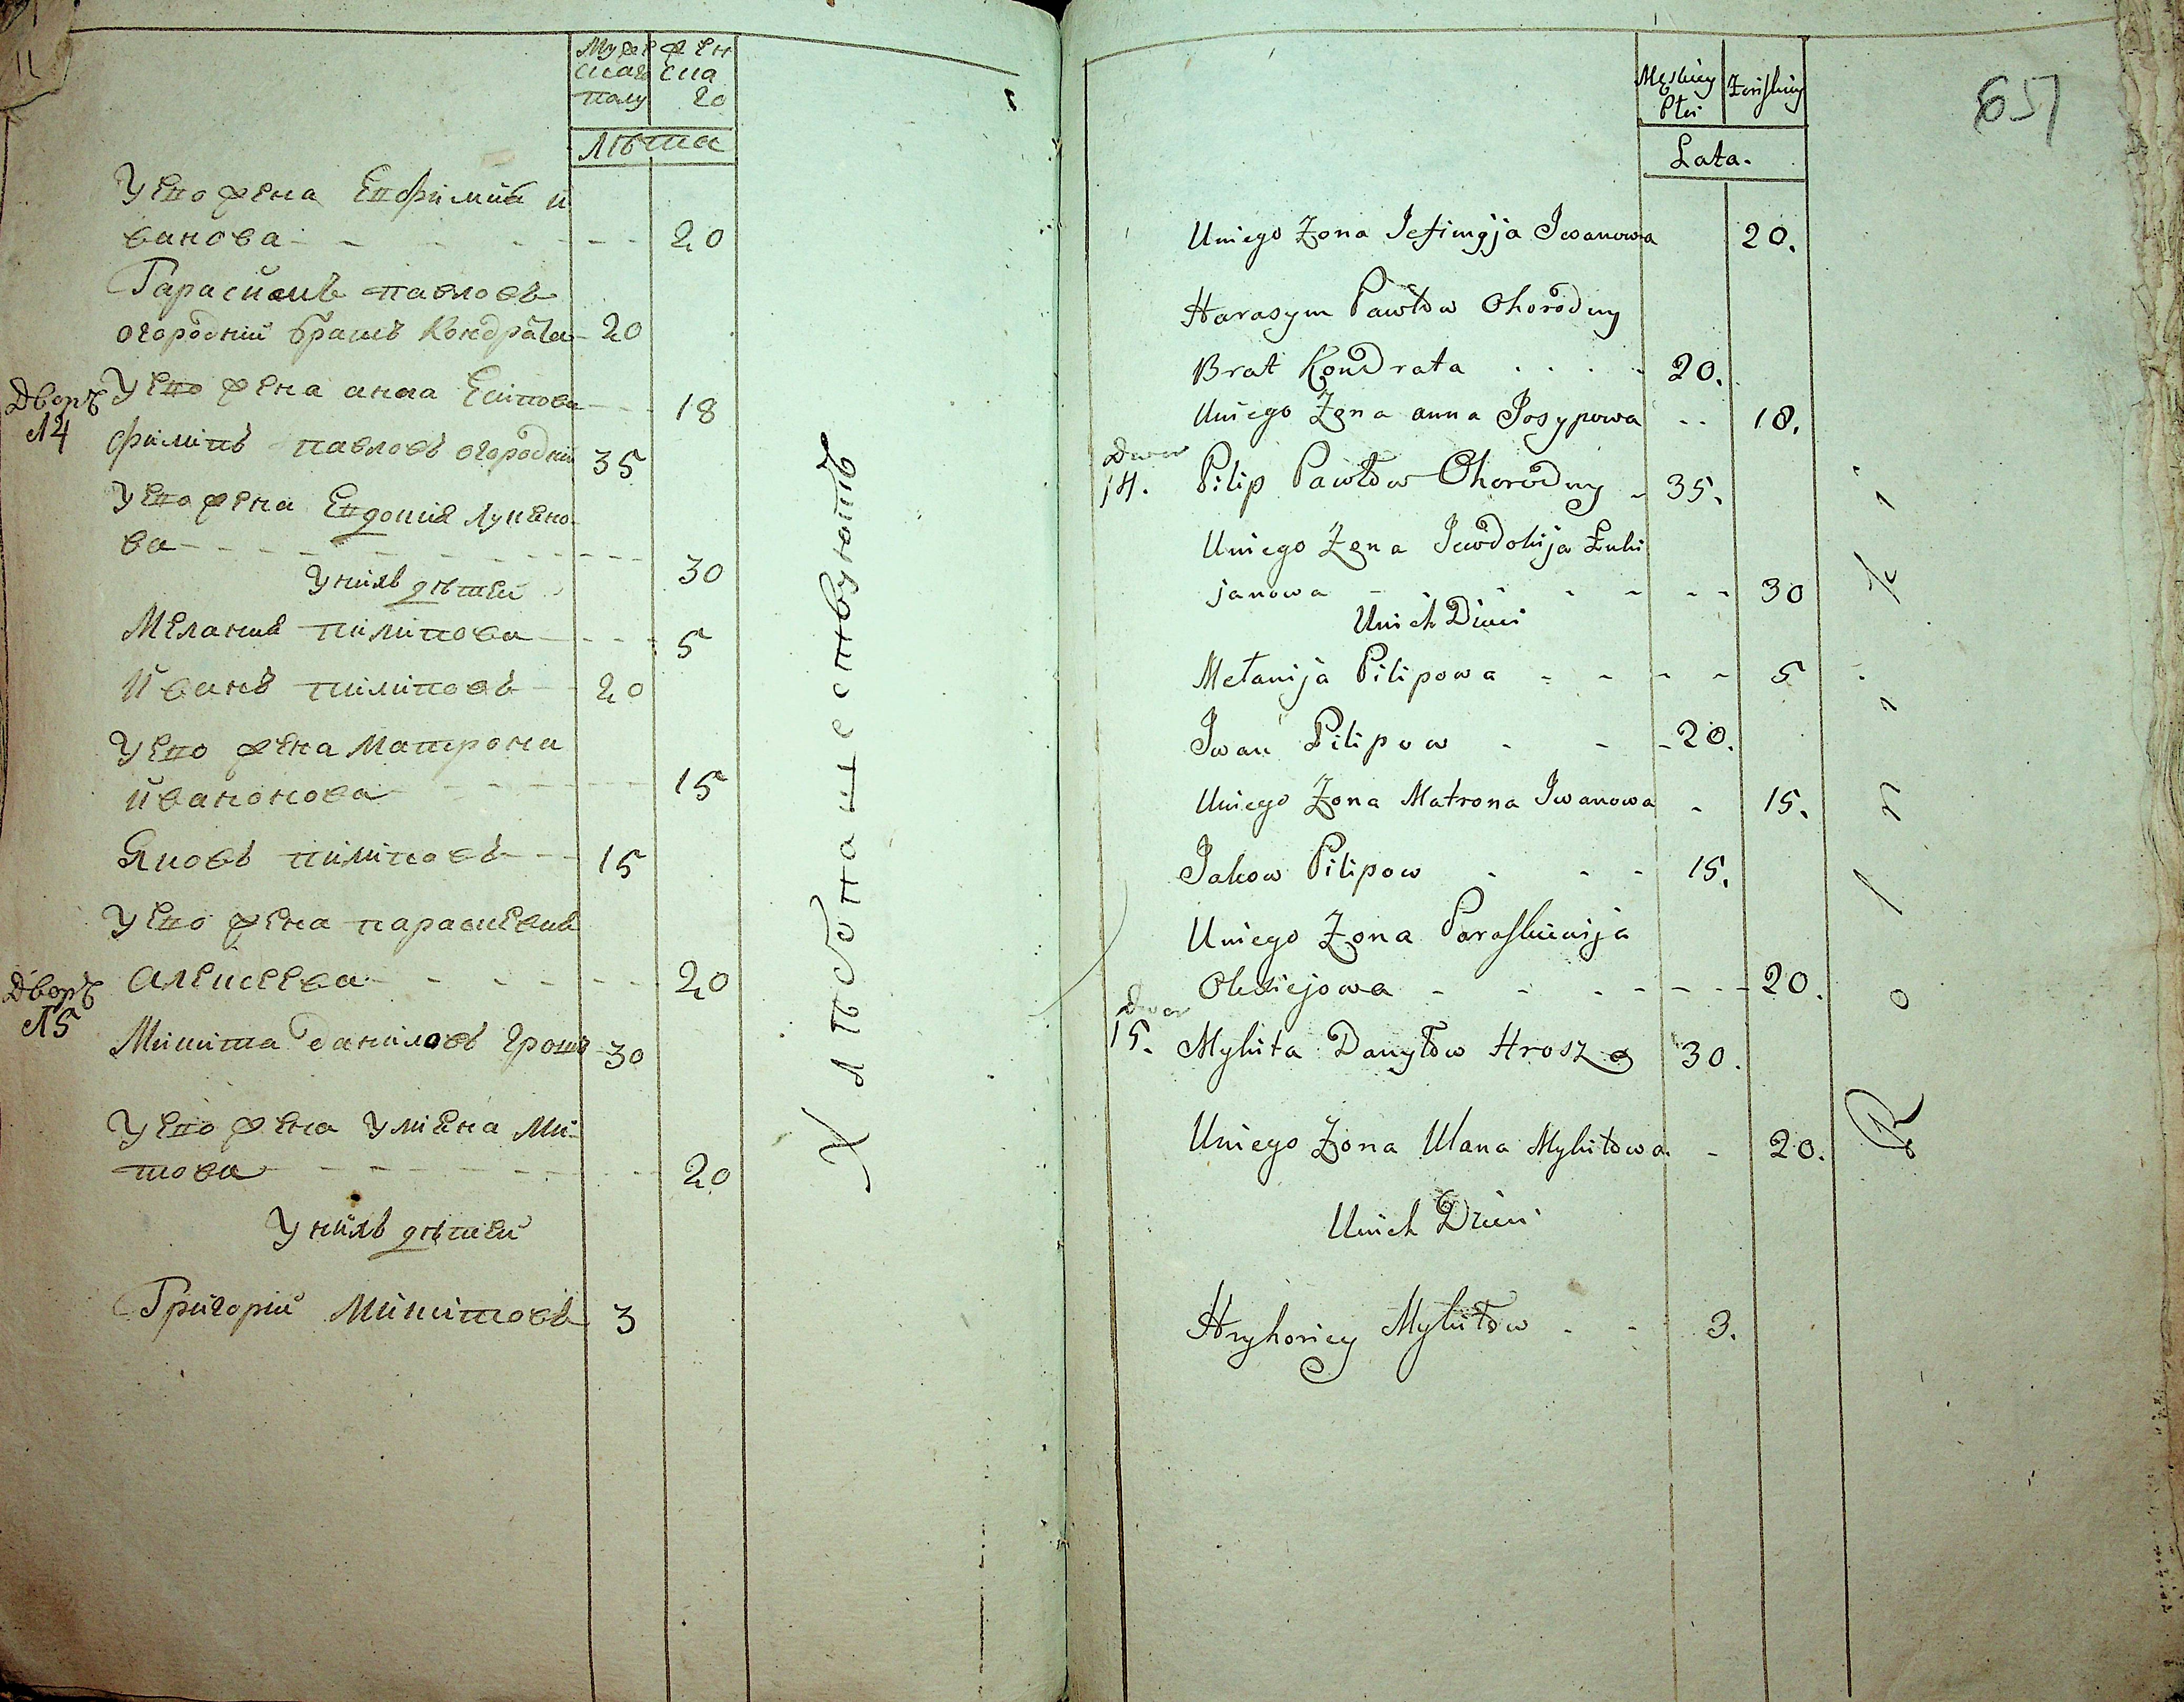 Мужескаго полу
Женска го
Лѣта
У его жена Евфимия и
ванова 20
Гарасимъ павловъ
огородний братъ Кондрата 20
У его жена анна Есипова 18
Дворъ 14
Филипъ павловъ огородний 35
У его жена Евдокия Лукяно
ва 30
У нихъ дѣтей
Мелания пилипова 5
Иванъ пилиповъ 20
У его жена Матрона
Иванонова 15
Яковъ пилиповъ 15
У его жена параскевия
Алексеева 20
Дворъ 15
Микита даниловъ грошъ 30
У его жена Улияна Мики
това 20
У нихъ дѣтей
Григорий Микитовъ 3
Хлѣбопашествуютъ
Męskiey Płci
Żeńskiey
651
Lata.
U niego Żona Jefimija Iwanowa 20.
Harasym Pawłow Ohorodny
Brat Kondrata 20.
U niego Żona anna Josypowa 18.
Dwor
14. Pilip Pawłow Ohorodny 35.
U niego Żona Jewdokija Łuki
janowa 30
U nich Dzieci
Mełanija Pilipowa 5
Iwan Pilipow 20.
U niego Żona Matrona Iwanowa 15.
Jakow Pilipow 15.
U niego Żona Paraskiewija
Oleksiejowa 20.
Dwor
15. Mykita Danyłow Hrosz 30.
U niego Żona Ulana Mykitowa 20.
U nich Dzieci
Hryhoriey Mykitow 3.
Rolnicki